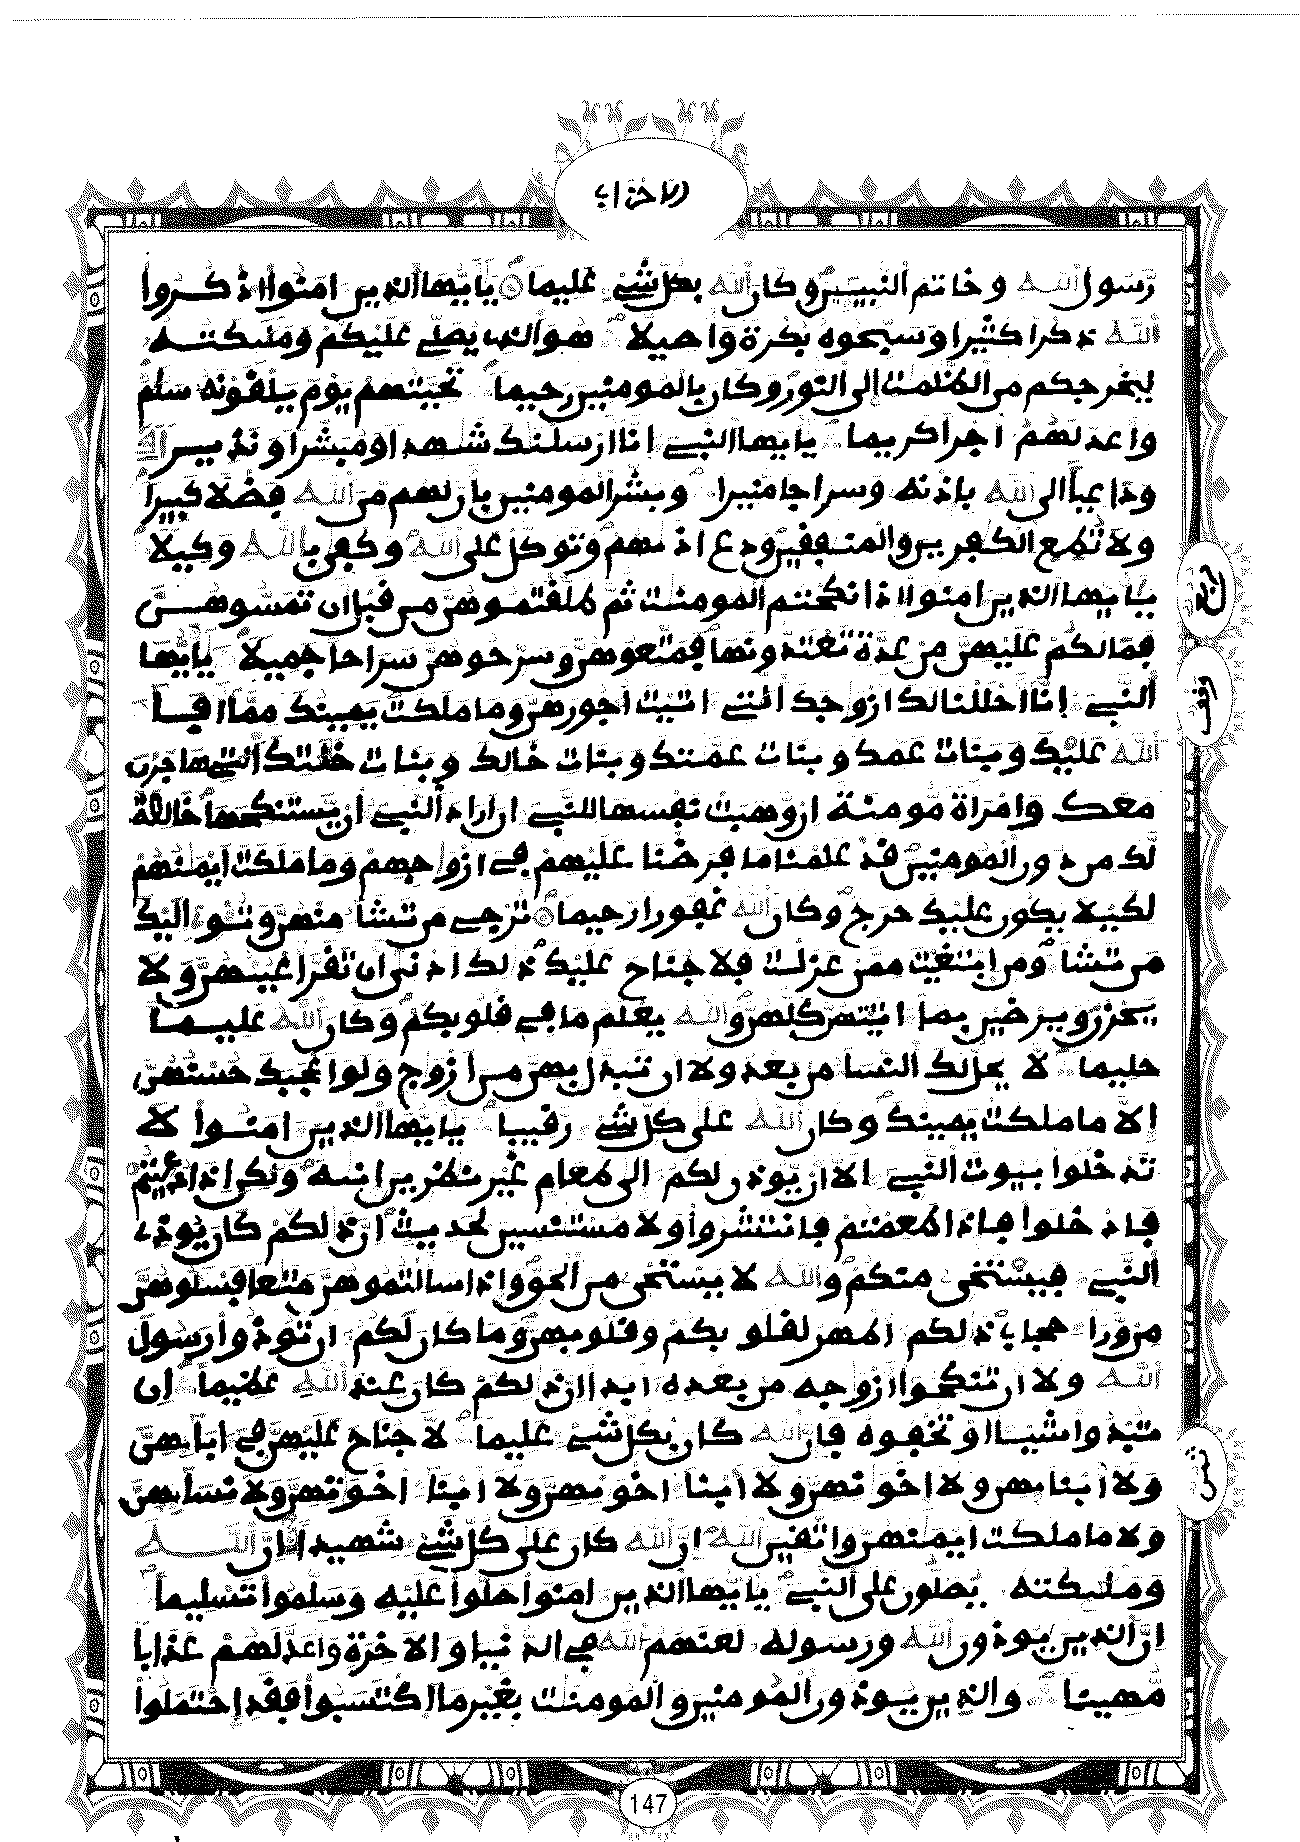 الاحزاب
رسول الله وخاتم النبيين وكان الله بكل شيء عليما يايها الذين امنوا اذكروا
الله ذكرا كثيرا وسبحوه بكرة واصيلا هو الذي يصلي عليكم ومليكته
ليخرجكم من الظلمت الى النور وكان بالمومنين رحيما تحيتهم يوم يلقونه سلم
واعد لهم اجرا كريما يايها النبيء انا ارسلنك شهدا ومبشرا ونذيرا
وداعيا الى الله باذنه وسراجا منيرا وبشر المومنين بان لهم من الله فضلا كبيرا
ولا تطع الكفرين والمنفقين ودع اذيهم وتوكل على الله وكفى بالله وكيلا
يايها الذين امنوا اذا نكحتم المومنت ثم طلقتموهن من قبل ان تمسوهن
فما لكم عليهن من عدة تعتدونها فمتعوهن وسرحوهن سراحا جميلا يايها
النبيء انا احللنا لك ازوجك التي اتيت اجورهن وما ملكت يمينك مما افاء
الله عليك وبنات عمك وبنات عمتك وبنات خالك وبنات خلتك التي هاجرن
معك وامراة مومنة ان وهبت نفسها للنبيء ان اراد النبيء ان يستنكحها خالصة
لك من دون المومنين قد علمنا ما فرضنا عليهم في ازوجهم وما ملكت ايمنهم
لكيلا يكون عليك حرج وكان الله غفورا رحيما ترجي من تشاء منهن وتئوي اليك
من تشاء ومن ابتغيت ممن عزلت فلا جناح عليك ذلك ادنى ان تقر اعينهن ولا
يحزن ويرضين بما اتيتهن كلهن والله يعلم ما في قلوبكم وكان الله عليما
حليما لا يحل لك النساء من بعد ولا ان تبدل بهن من ازوج ولو اعجبك حسنهن
الا ما ملكت يمينك وكان الله على كل شيء رقيبا يايها الذين امنوا لا
تدخلوا بيوت النبيء الا ان يوذن لكم الى طعام غير نظرين انيه ولكن اذا دعيتم
فادخلوا فاذا طعمتم فانتشروا ولا مستنسين لحديث ان ذلكم كان يوذي
النبيء فيستحي منكم والله لا يستحي من الحق واذا سالتموهن متعا فسلوهن
من وراء حجاب ذلكم اطهر لقلوبكم وقلوبهن وما كان لكم ان توذوا رسول
الله ولا ان تنكحوا ازوجه من بعده ابدا ان ذلكم كان عند الله عظيما ان
تبدوا شيئا او تخفوه فان الله كان بكل شيء عليما لا جناح عليهن في ابايهن
ولا ابنايهن ولا اخونهن ولا ابناء اخونهن ولا ابناء اخوتهن ولا نسايهن
ولا ما ملكت ايمنهن واتقين الله ان الله كان على كل شيء شهيدا ان الله
ومليكته يصلون على النبيء يايها الذين امنوا صلوا عليه وسلموا تسليما
ان الذين يوذون الله ورسوله لعنهم الله في الدنيا والاخرة واعد لهم عذابا
مهينا والذين يوذون المومنين والمومنت بغير ما اكتسبوا فقد احتملوا
ربع
وقف
ثمن
147